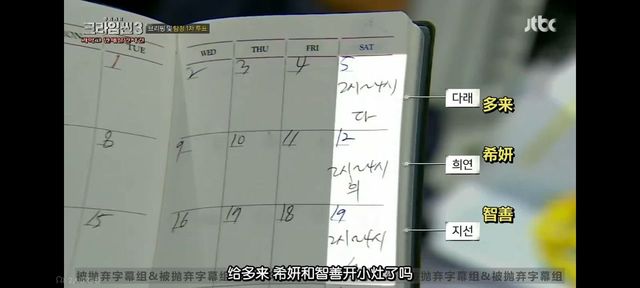 크라임씬3
브리핑 및 탐정 1차 투표
jtbc
TUE
WED
THU
FRI
SAT
1
2
3
4
5
2시~4시
다
다래
多来
8
9
10
11
12
2시~4시
희
희연
希妍
15
16
17
18
19
2시~4시
지선
智善
给多来 希妍和智善开小灶了吗
被抛弃字幕组&被抛弃字幕组
被抛弃字幕组&被抛弃字幕组